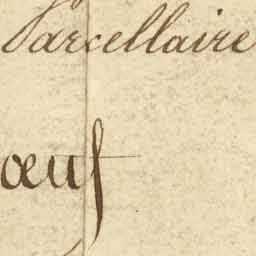 Parcellaire
œuf